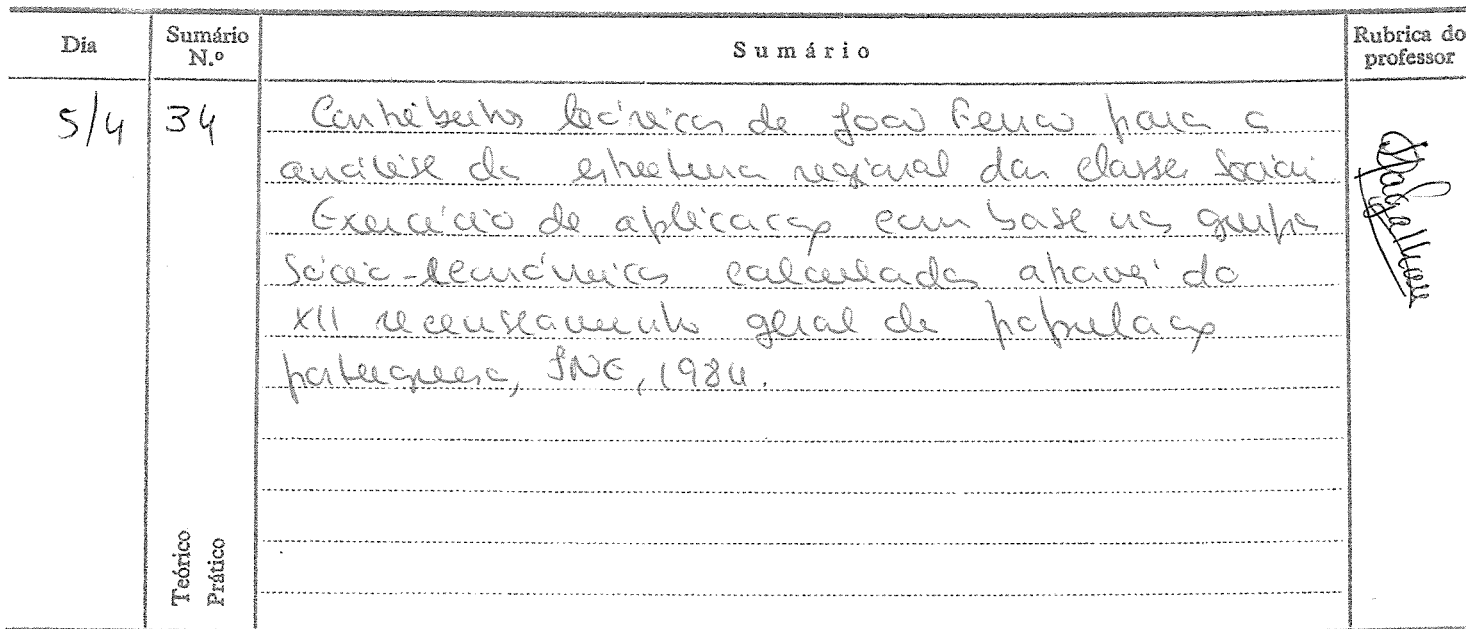 Dia
Sumário N.º
Sumário
Rubrica do professor
5/4
34
Contributos teóricos de João Ferrão para a
análise da estrutura regional das classes sociais.
Exercício de aplicação com base nos grupos
sócio-económicos calculados através do
XII recenseamento geral da população
portuguesa, INE, 1984.
Teórico
Prático